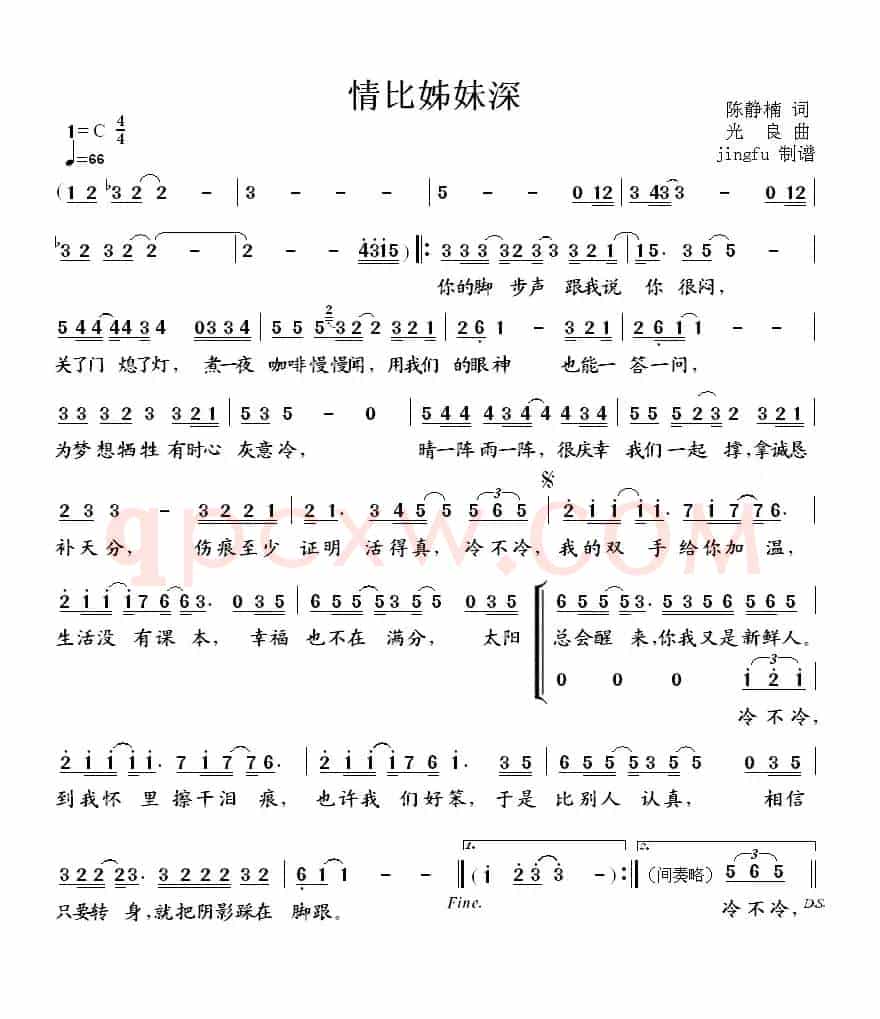 情比姊妹深
陈静楠 词
1=C 4/4
光 良 曲
♩=66
jingfu 制谱
(1 2 ♭3 2 2 - | 3 - - - | 5 - - 0 12 | 3 433 - 0 12 |
♭3 2 3 2 2 - | 2 - - 4315) |: 3 3 3 32 3 3 3 2 1 | 1 5. 3 5 5 - |
你的脚 步声 跟我说 你 很闷,
5 4 4 44 3 4 0 3 3 4 | 5 5 5 2 3 2 2 3 2 1 | 2 6 1 - 3 2 1 | 2 6 1 1 - |
关了门 熄了灯, 煮一夜 咖啡慢慢闻, 用我们 的眼神 也能一 答一问,
3 3 3 2 3 3 2 1 | 5 3 5 - 0 | 5 4 4 4 3 4 4 4 3 4 | 5 5 5 2 3 2 3 2 1 |
为梦想牺牲 有时心 灰意冷, 晴一阵 雨一阵, 很庆幸 我们一起 撑,拿诚恳
2 3 3 - 3 2 2 1 | 2 1. 3 4 5 5 5 6 5 3 | 2 1 1 1 1. 7 1 7 7 6. |
补天分, 伤痕至少 证明 活得真, 冷不冷, 我的双 手给你加 温,
2 1 1 1 7 6 6 3. 0 3 5 | 6 5 5 5 3 5 5 3 5 | 6 5 5 5 3. 5 3 5 6 5 6 5 |
生活没 有课 本, 幸福 也不在 满分, 太阳 总会醒 来,你我又是新鲜人。
0 0 0 1 2 1 3 |
冷不冷,
2 1 1 1 1. 7 1 7 7 6. | 2 1 1 1 7 6 1 3 5 | 6 5 5 5 3 5 5 0 3 5 |
到我怀 里擦干泪 痕, 也许我 们好笨, 于是 比别人 认真, 相信
1. 2.
3 2 2 2 3. 3 2 2 2 3 2 | 6 1 1 - - ‖ ( i 2 3 3 - ) :‖ (间奏略) 5 6 5 3 ‖
只要转 身,就把阴影踩在 脚跟。 Fine. 冷不冷, D.S.
qpcxw.COM